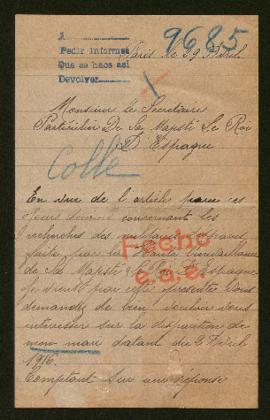 A
Pedir informes
Que se haga así
Devolver
9685
Paris le 29 Avril
Monsieur le Secretaire
Particulier De Sa Majesté Le Roi
D'Espagne
Colle
En vue de l'article paru ces
jours concernant les
recherches des militaires
faite par la Haute bienveillance
de Sa Majesté le Roi D'Espagne
je viens par cette présente vous
demander de bien vouloir vous
intéresser sur la disparition de
mon mari datant du 9 Avril
1916.
Comptant sur une réponse
Fecho
e.a.e.